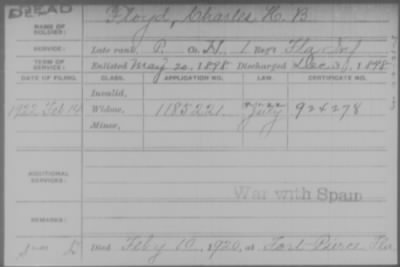 DEAD
NAME OF SOLDIER: Floyd, Charles H. B.
SERVICE: Late rank, P. Co. H, 1 Reg't Fla Inf
TERM OF SERVICE: Enlisted May 20, 1898 Discharged Dec 3, 1898
DATE OF FILING. CLASS. APPLICATION NO. LAW. CERTIFICATE NO.
Invalid,
1922 Feb 14 Widow, 1185221 July 924278
Minor,
ADDITIONAL SERVICES:
War with Spain
REMARKS:
Died Feby 15, 1920, at Fort Pierce Fla